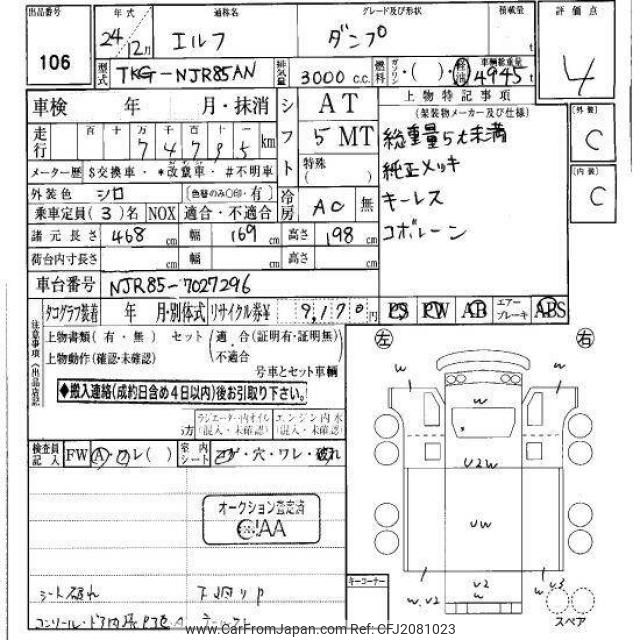 出品番号 年式 通称名 グレード及び形状 積載量 評価点
106 24 12月 エルフ ダンプ t 4
型式 TKG-NJR85AN 排気量 3000 c.c. 燃料 ガソリン・( )・軽油 車輌総重量 4945 t
車検 年 月・抹消 シフト AT 上物特記事項 外装
走行 百 十 万 千 百 十 一 km 5 MT (架装物メーカー及び仕様) C
74795 特殊 ( ) 総重量5t未満
メーター歴 $交換車・*改竄車・#不明車 純正メッキ 内装
外装色 シロ (色替のみ○印・有) 冷房 AC 無 キーレス C
乗車定員(3)名 NOX 適合・不適合 コボレーン
諸元長さ 468 cm 幅 169 cm 高さ 198 cm
荷台内寸長さ cm 幅 cm 高さ cm
車台番号 NJR85-7027296
タコグラフ装着 年 月・別体式 リサイクル券¥ 9,170 円 PS PW AB エアーブレーキ ABS
注意事項 上物書類(有・無) セット 適合(証明有・証明無) 左 右
上物動作(確認・未確認) ・不適合
号車とセット車輌
◆搬入連絡(成約日含め4日以内)後お引取り下さい。
ラジエーター内オイル エンジン内水
(混入・未確認) (混入・未確認)
検査員記入 FW A・ワレ( ) 室内シート コゲ・穴・ワレ・破れ
w w w
U2W
UW
オークション査定済
CIAA
キーコーナー
シート破れ 下回りP
w w,v2 v2 w w v3
スペア
www.CarFromJapan.com Ref:CFJ2081023